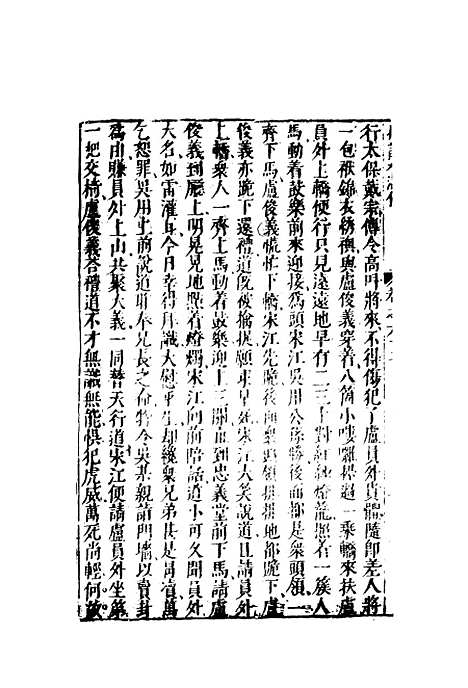 行太保戴宗傳令高叫將來不得傷犯了盧員外貴體隨即差人將
一包袱錦衣綉襖與盧俊義穿着八箇小嘍囉擡過一乘轎來扶盧
員外上轎便行只見遠遠地早有二三十對紅紗燈籠照着一簇人
馬動着鼓樂前來迎接爲頭宋江吳用公孫勝後面都是衆頭領一
齊下馬盧俊義慌忙下轎宋江先跪後面衆頭領排排地都跪下盧
俊義亦跪下還禮道既被擒捉願求早死宋江大笑說道且請員外
上轎衆人一齊上馬動着鼓樂迎上三關直到忠義堂前下馬請盧
俊義到廳上明晃晃地點着燈燭宋江向前陪話道小可久聞員外
大名如雷灌耳今日幸得拜識大慰平生却纔衆兄弟甚是冐瀆萬
乞恕罪吳用上前說道昨奉兄長之命特令吳某親詣門墻以賣卦
爲由賺員外上山共聚大義一同替天行道宋江便請盧員外坐第
一把交椅盧俊義荅禮道不才無識無能悞犯虎威萬死尚輕何故